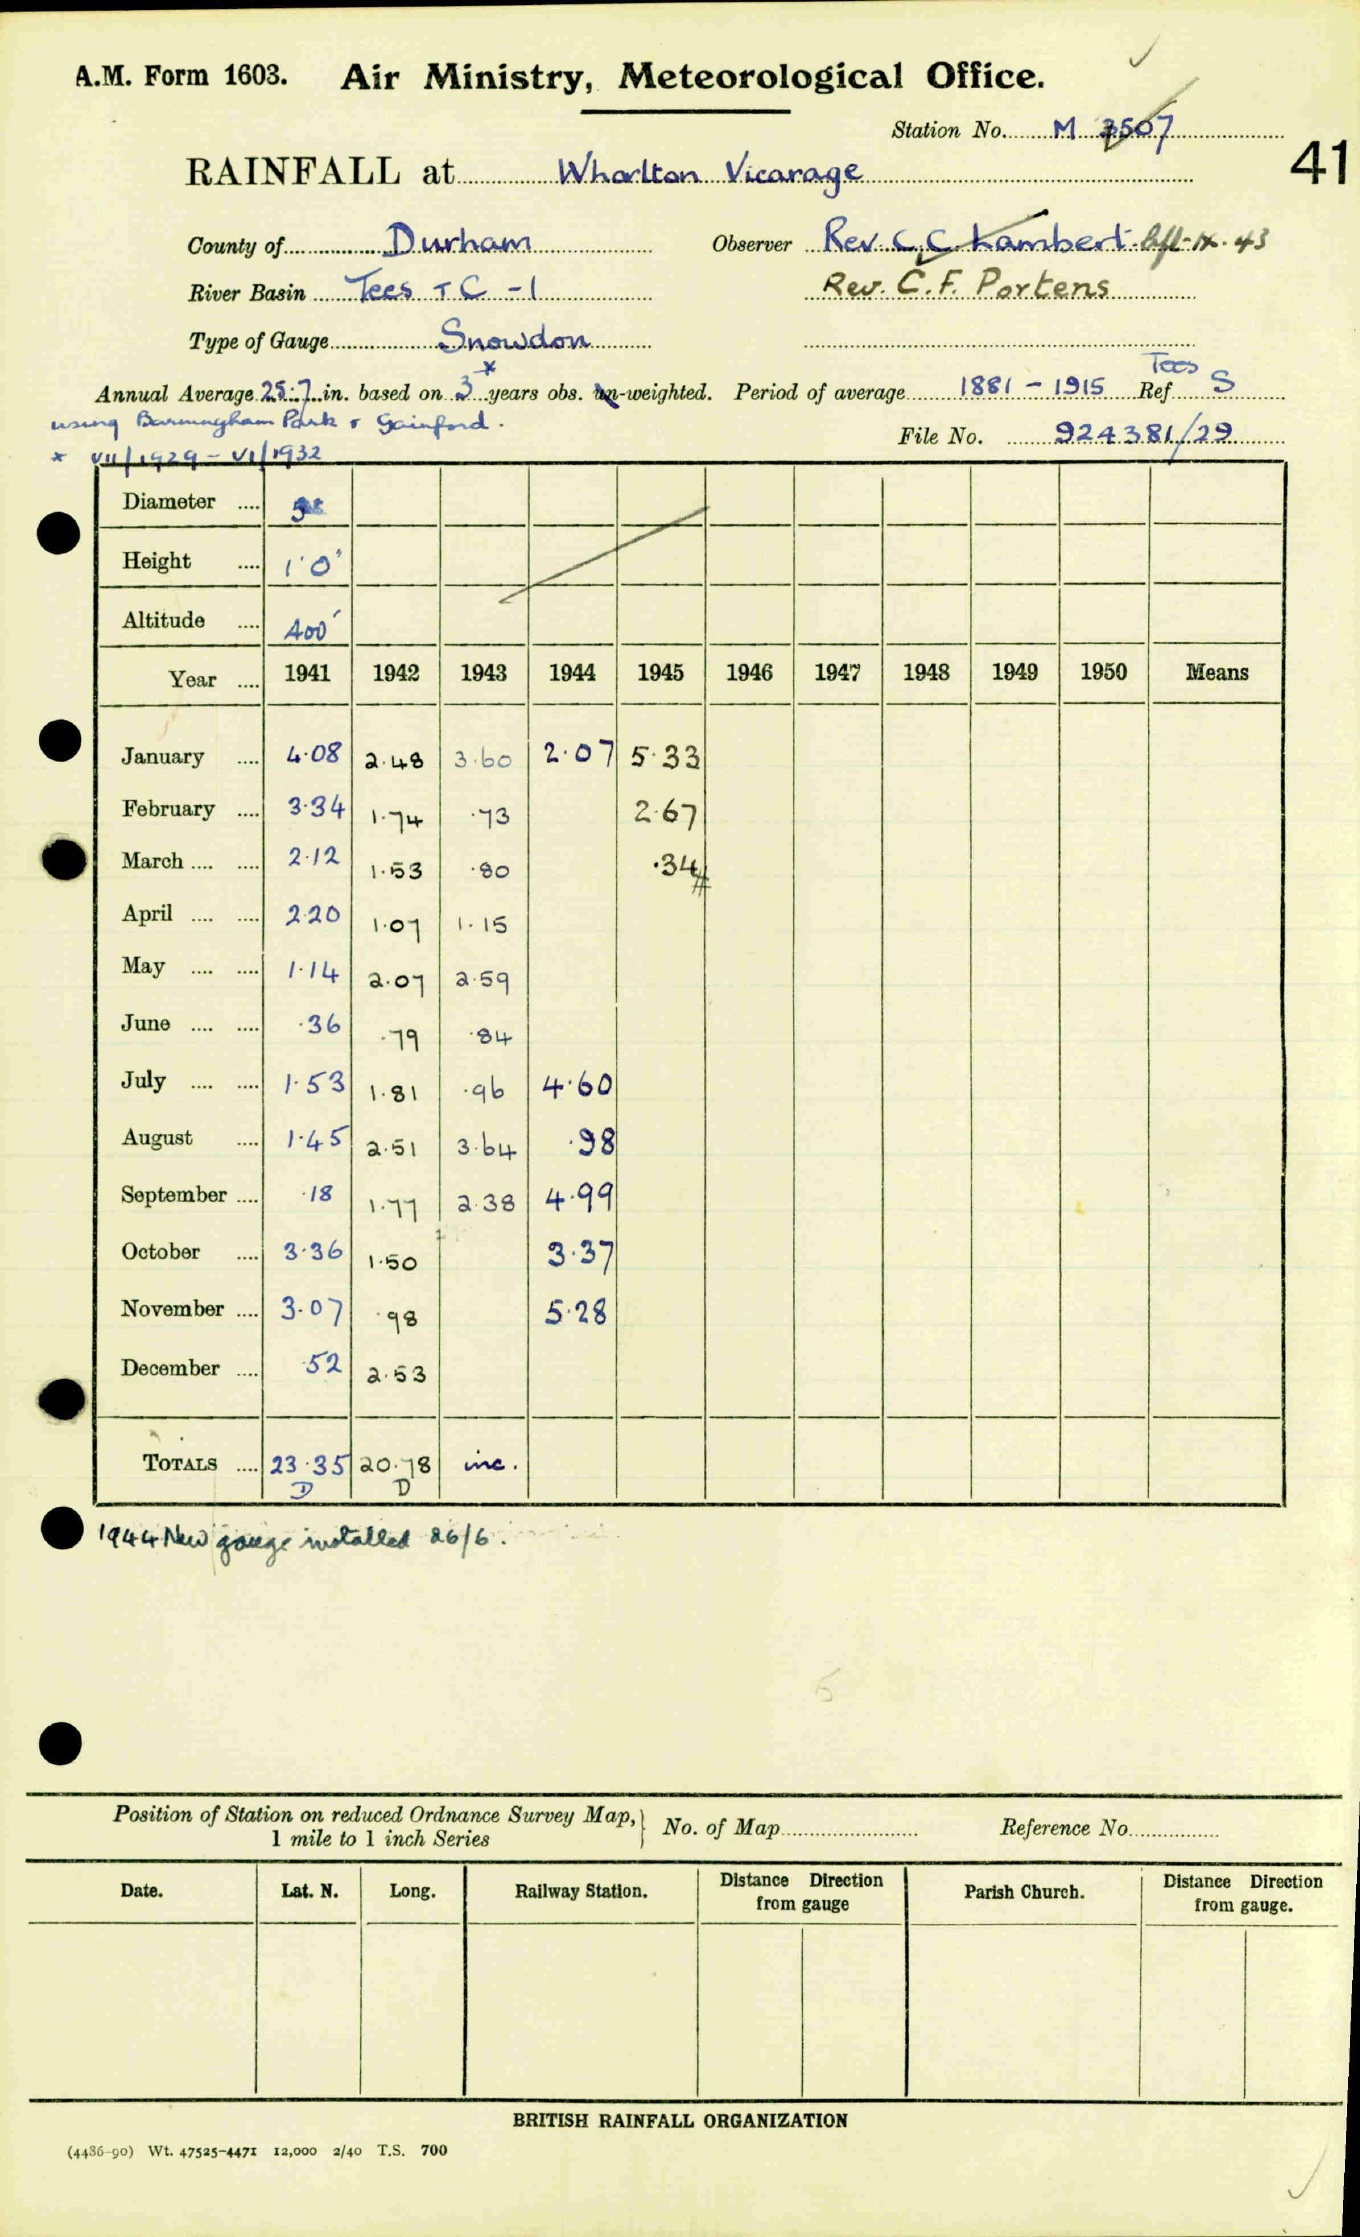 A.M. Form 1603. Air Ministry, Meteorological Office.
Station No. M 3507
41
RAINFALL at Whorlton Vicarage
County of Durham Observer Rev. C. C. Lambert left IX. 43
River Basin Tees TC-1 Rev. C. F. Portens
Type of Gauge Snowdon
Annual Average 25.7 in. based on 3* years obs. un-weighted. Period of average 1881-1915 Tees Ref S
using Barningham Park & Gainford. File No. 924381/29
* VII/1929 - VI/1932
Diameter .... 5
Height .... 1'0"
Altitude .... 400'
Year .... 1941 1942 1943 1944 1945 1946 1947 1948 1949 1950 Means
January .... 4.08 2.48 3.60 2.07 5.33
February .... 3.34 1.74 .73 2.67
March .... .... 2.12 1.53 .80 .34#
April .... .... 2.20 1.07 1.15
May .... .... 1.14 2.07 2.59
June .... .... .36 .79 .84
July .... .... 1.53 1.81 .96 4.60
August .... 1.45 2.51 3.64 .98
September .... .18 1.77 2.38 4.99
October .... 3.36 1.50 3.37
November .... 3.07 .98 5.28
December .... .52 2.53
TOTALS .... 23.35 20.78 inc.
D D
1944 New gauge installed 26/6.
5
Position of Station on reduced Ordnance Survey Map, 1 mile to 1 inch Series } No. of Map Reference No.
Date. Lat. N. Long. Railway Station. Distance Direction from gauge Parish Church. Distance Direction from gauge.
BRITISH RAINFALL ORGANIZATION
(4486-90) Wt. 47525-4471 12,000 2/40 T.S. 700